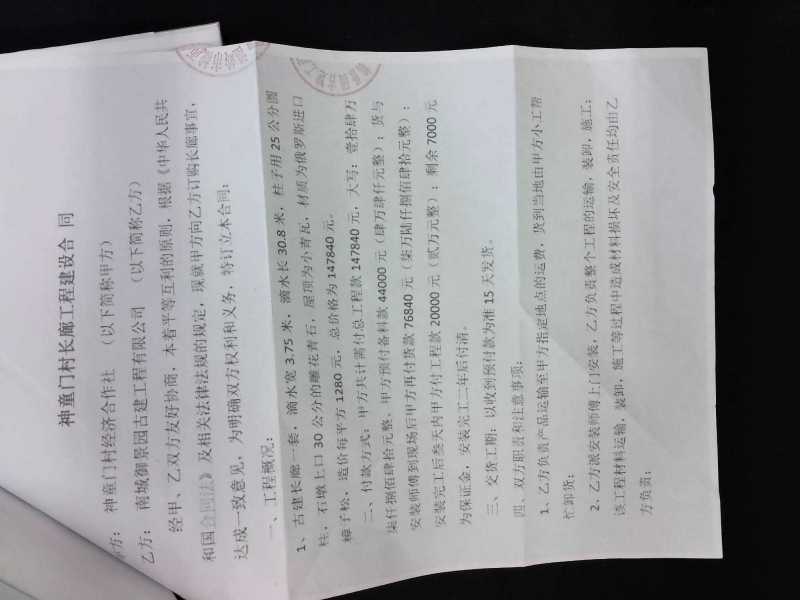 神童门村长廊工程建设合 同
方： 神童门村经济合作社 （以下简称甲方）
乙方： 南城御景园古建工程有限公司 （以下简称乙方）
经甲、乙双方友好协商，本着平等互利的原则，根据《中华人民共
和国合同法》及相关法律法规的规定，现就甲方向乙方订购长廊事宜，
达成一致意见，为明确双方权利和义务，特订立本合同：
一、工程概况：
1、古建长廊一套，滴水宽 3.75 米，滴水长 30.8 米，柱子用 25 公分圆
柱，石墩上口 30 公分的雕花青石，屋顶为小青瓦，材质为俄罗斯进口
樟子松，造价每平方 1280 元，总价格为 147840 元。
二、付款方式：甲方共计需付总工程款 147840 元，大写：壹拾肆万
柒仟捌佰肆拾元整、甲方预付备料款 44000 元（肆万肆仟元整）；货与
安装师傅到现场后甲方再付货款 76840 元（柒万陆仟捌佰肆拾元整）；
安装完工后叁天内甲方付工程款 20000 元（贰万元整）；剩余 7000 元
为保证金，安装完工二年后付清。
三、交货工期：以收到预付款为准 15 天发货。
四、双方职责和注意事项：
1、乙方负责产品运输至甲方指定地点的运费，货到当地由甲方小工帮
忙卸货；
2、乙方派安装师傅上门安装，乙方负责整个工程的运输，装卸，施工；
该工程材料运输，装卸，施工等过程中造成材料损坏及安全责任均由乙
方负责；